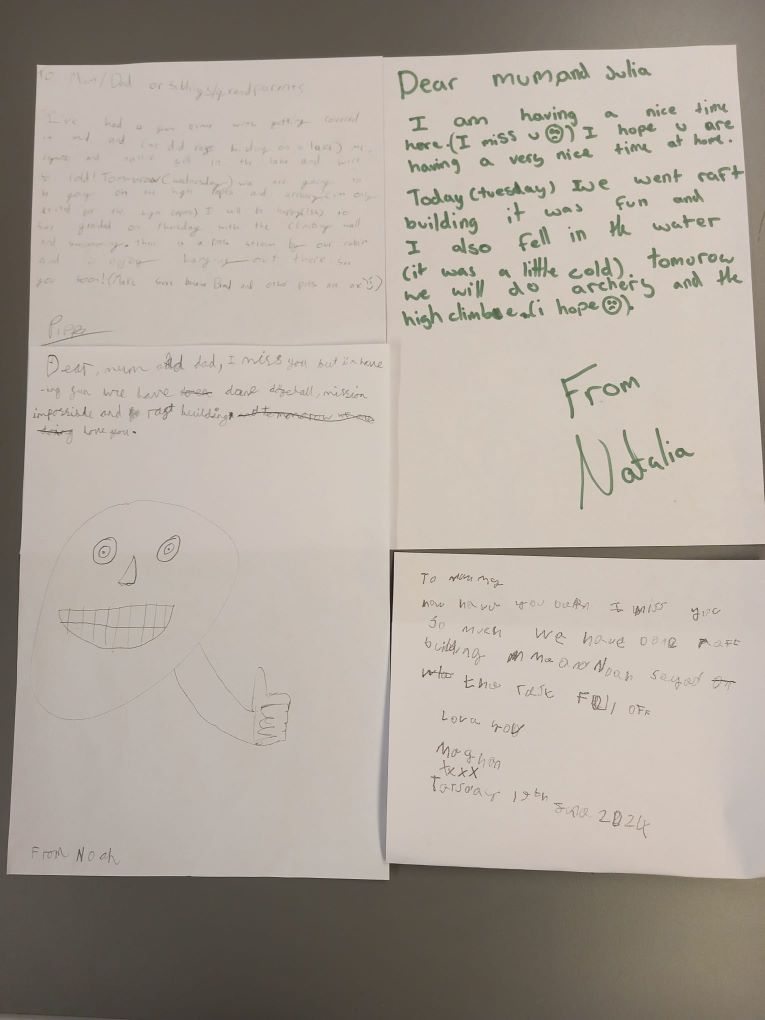 To Mum/Dad or siblings/grandparents
I've had a fun time with getting covered
in mud and (we did raft building on a lake)
fell in the lake and were
so cold! Tomorrow (wednesday) we are going to
be going on the high ropes and archery (i'm only
exited for the high ropes) I will be
on Thursday with the climbing wall
and there is a little stream by our cabin
and i enjoy hanging out there. See
you soon! (Make sure and other pets are ok
Pippa
Dear, mum and dad, I miss you but i'm have
-ing fun we have done dogeball, mission
impossible and raft building,
love you.
From Noah
Dear mum and Julia
I am having a nice time
here. (I miss u ☹) I hope u are
having a very nice time at home.
Today (tuesday) we went raft
building it was fun and
I also fell in the water
(it was a little cold). tomorow
we will do archery and the
high climb. (i hope ☹).
From
Natalia
To mummy
how have you I miss you
So much We have done raft
building Me and Noah
the raft Fell OFF
Love you
Meghan
xxxx
June 2024